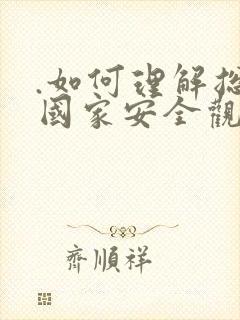 .如何理解总
國家安全觀
齊順祥